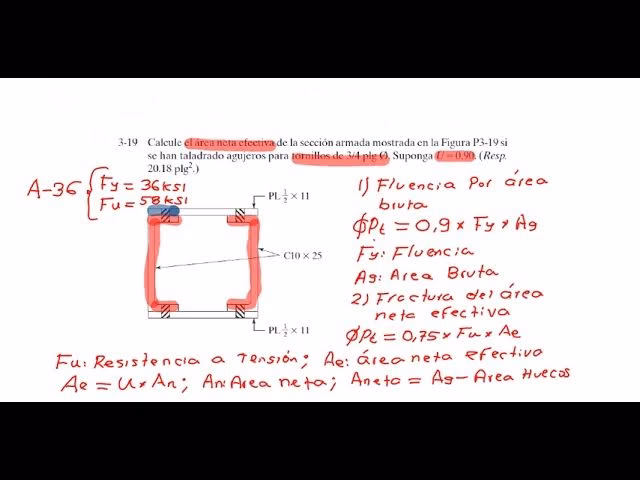 3-19 Calcule el área neta efectiva de la sección armada mostrada en la Figura P3-19 si
se han taladrado agujeros para tornillos de 3/4 plg Ø. Suponga U = 0.90. (Resp.
20.18 plg².)
A-36 { Fy = 36ksi
Fu = 58ksi
PL ½ × 11
C10 × 25
PL ½ × 11
1) Fluencia Por área
bruta
ϕPt = 0,9 * Fy * Ag
Fy: Fluencia
Ag: Area Bruta
2) Fractura del área
neta efectiva
ϕPt = 0,75 * Fu * Ae
Fu: Resistencia a Tensión; Ae: área neta efectiva
Ae = U * An; An: Area neta; Aneta = Ag - Area Huecos